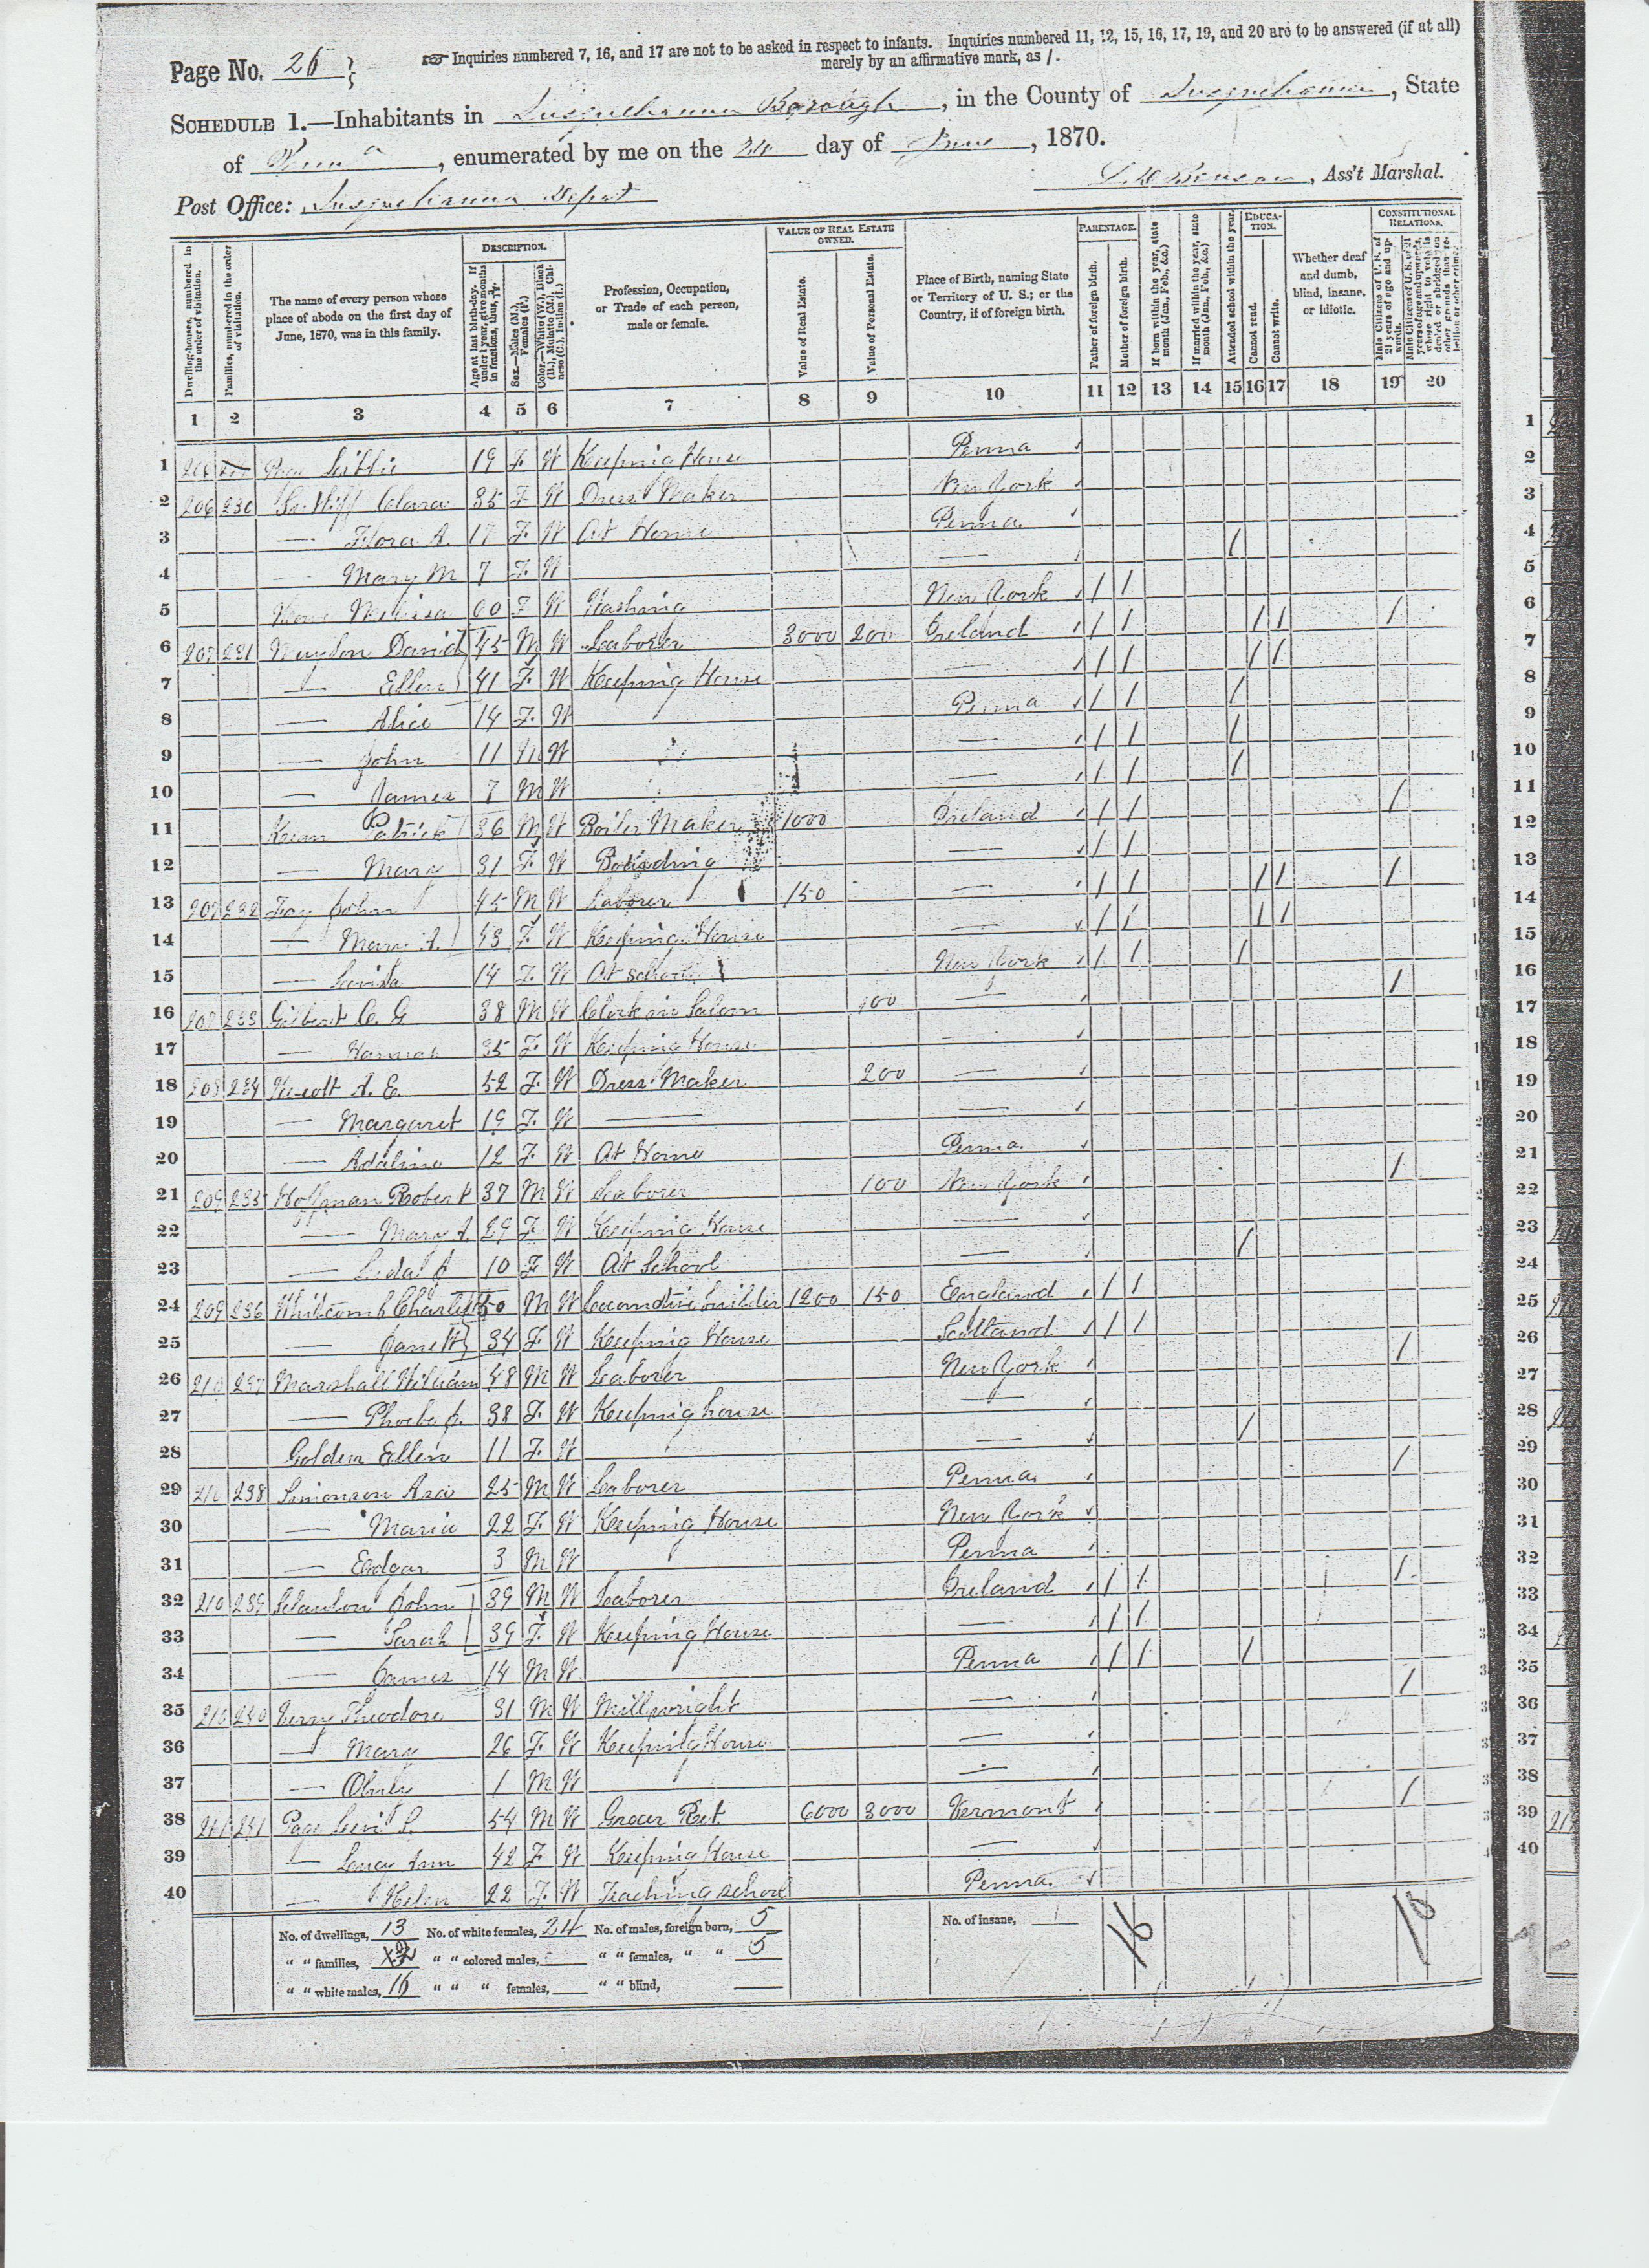 Page No. 26
☞ Inquiries numbered 7, 16, and 17 are not to be asked in respect to infants. Inquiries numbered 11, 12, 15, 16, 17, 19, and 20 are to be answered (if at all)
merely by an affirmative mark, as /.
SCHEDULE 1.—Inhabitants in Susquehanna Borough, in the County of Susquehanna, State
of Penna, enumerated by me on the 24 day of June, 1870.
Post Office: Susquehanna Depot
Ass't Marshal.
DESCRIPTION. VALUE OF REAL ESTATE OWNED. PARENTAGE. EDUCATION. CONSTITUTIONAL RELATIONS.
Dwelling-houses, numbered in the order of visitation.
Families, numbered in the order of visitation.
The name of every person whose place of abode on the first day of June, 1870, was in this family.
Age at last birth-day. If under 1 year, give months in fractions, thus,
Sex.—Males (M.), Females (F.)
Color.—White (W.), Black (B.), Mulatto (M.), Chinese (C.), Indian (I.)
Profession, Occupation, or Trade of each person, male or female.
Value of Real Estate.
Value of Personal Estate.
Place of Birth, naming State or Territory of U. S.; or the Country, if of foreign birth.
Father of foreign birth.
Mother of foreign birth.
If born within the year, state month (Jan., Feb., &c.)
If married within the year, state month (Jan., Feb., &c.)
Attended school within the year.
Cannot read.
Cannot write.
Whether deaf and dumb, blind, insane, or idiotic.
Male Citizens of U. S. of 21 years of age and upwards.
Male Citizens of U. S. of 21 years of age and upwards, whose right to vote is denied or abridged on other grounds than rebellion or other crime.
1 2 3 4 5 6 7 8 9 10 11 12 13 14 15 16 17 18 19 20
1 19 F W Keeping House Penna
2 206 230 Clara 35 F W Dress Maker New York
3 — Flora A. 17 F W At Home Penna
4 — Mary M 7 F W — /
5 60 F W Washing New York / /
6 207 231 David 45 M W Laborer 3000 200 Ireland / / / / /
7 — Ellen 41 F W Keeping House — / / / /
8 — Alice 14 F W Penna / / /
9 — John 11 M W — / / /
10 — James 7 M W — / / /
11 Patrick 36 M W Boiler Maker 1000 Ireland / / /
12 — Mary 31 F W Boarding — / /
13 207 232 Fay John 45 M W Laborer 150 — / / / / /
14 — Mary A. 43 F W Keeping House — / / / /
15 — 14 F W At school New York / / /
16 207 233 Gilbert C. G 38 M W Clerk in Saloon 100 — /
17 — 35 F W Keeping House —
18 208 234 A. E. 52 F W Dress Maker 200 —
19 — Margaret 19 F W — —
20 — Adaline 12 F W At Home Penna
21 209 235 Hoffman Robert 37 M W Laborer 100 New York /
22 — Mary A. 29 F W Keeping House —
23 — J 10 F W At School — /
24 209 236 Whitcomb Charles 50 M W Locomotive builder 1200 150 England / /
25 — Janett 34 F W Keeping House Scotland / /
26 210 237 Marshall William 48 M W Laborer New York /
27 — Phoebe J. 38 F W Keeping house —
28 Golden Ellen 11 F W — /
29 210 238 Simonson Asa 25 M W Laborer Penna /
30 — Maria 22 F W Keeping House New York
31 — Edgar 3 M W Penna
32 210 239 Scanlon John 39 M W Laborer Ireland / / /
33 — Sarah 39 F W Keeping House — / /
34 — James 14 M W Penna / / /
35 210 240 Theodore 31 M W Millwright — /
36 — Mary 26 F W Keeping House —
37 — 1 M W —
38 211 241 Page Levi S. 54 M W Grocer Ret. 6000 3000 Vermont /
39 — Lucy Ann 42 F W Keeping House —
40 — Helen 22 F W Teaching school Penna.
No. of dwellings, 13 No. of white females, 24 No. of males, foreign born, 5 No. of insane,
" " families, " " colored males, " " females, " " 5
" " white males, 16 " " " females, " " blind,
16 10